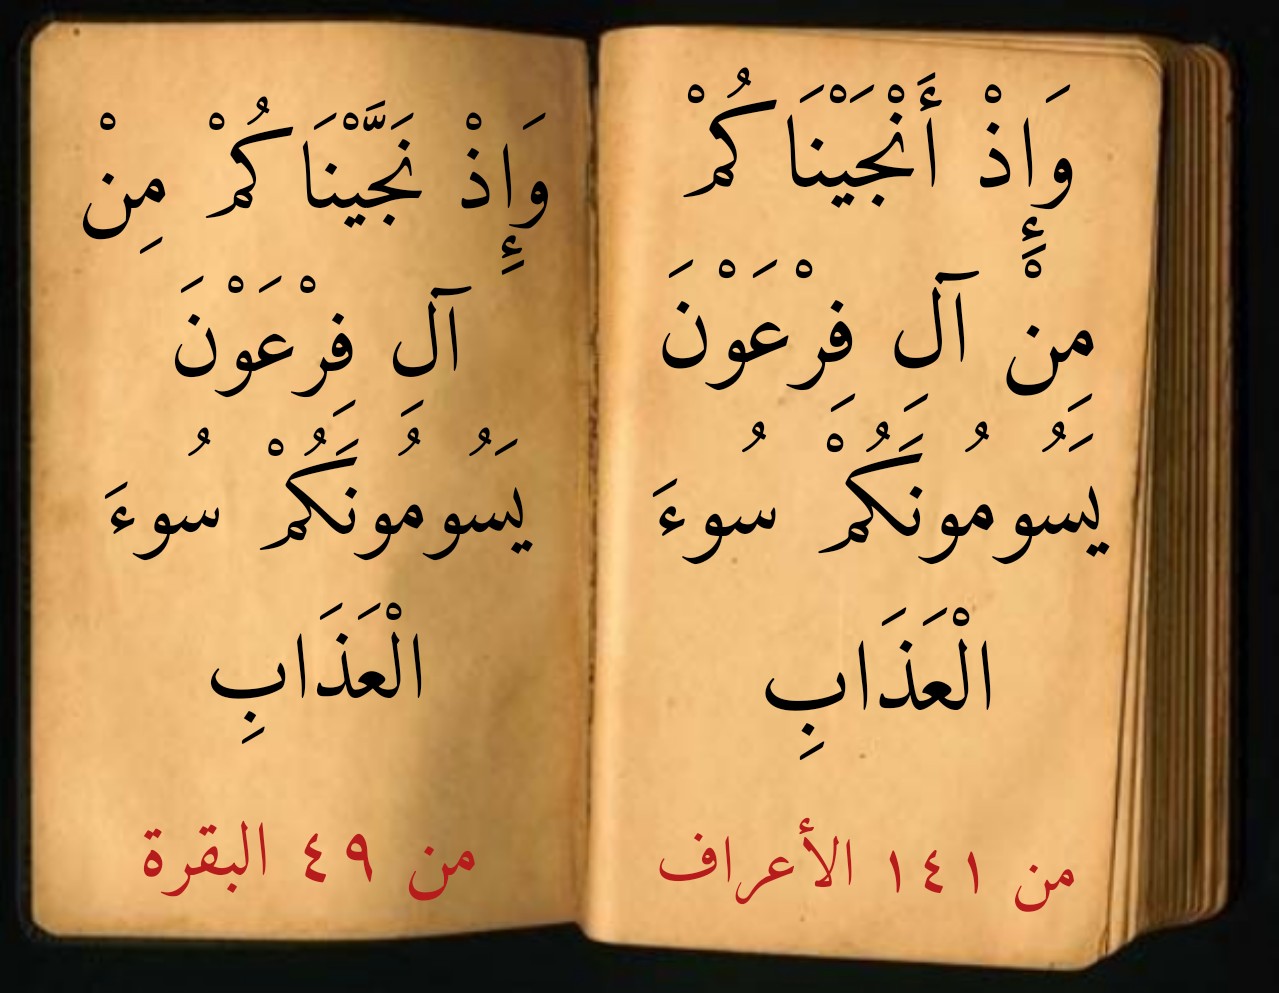 وَإِذْ أَنْجَيْنَاكُمْ
مِنْ آلِ فِرْعَوْنَ
يَسُومُونَكُمْ سُوءَ
الْعَذَابِ
من ١٤١ الأعراف
وَإِذْ نَجَّيْنَاكُمْ مِنْ
آلِ فِرْعَوْنَ
يَسُومُونَكُمْ سُوءَ
الْعَذَابِ
من ٤٩ البقرة